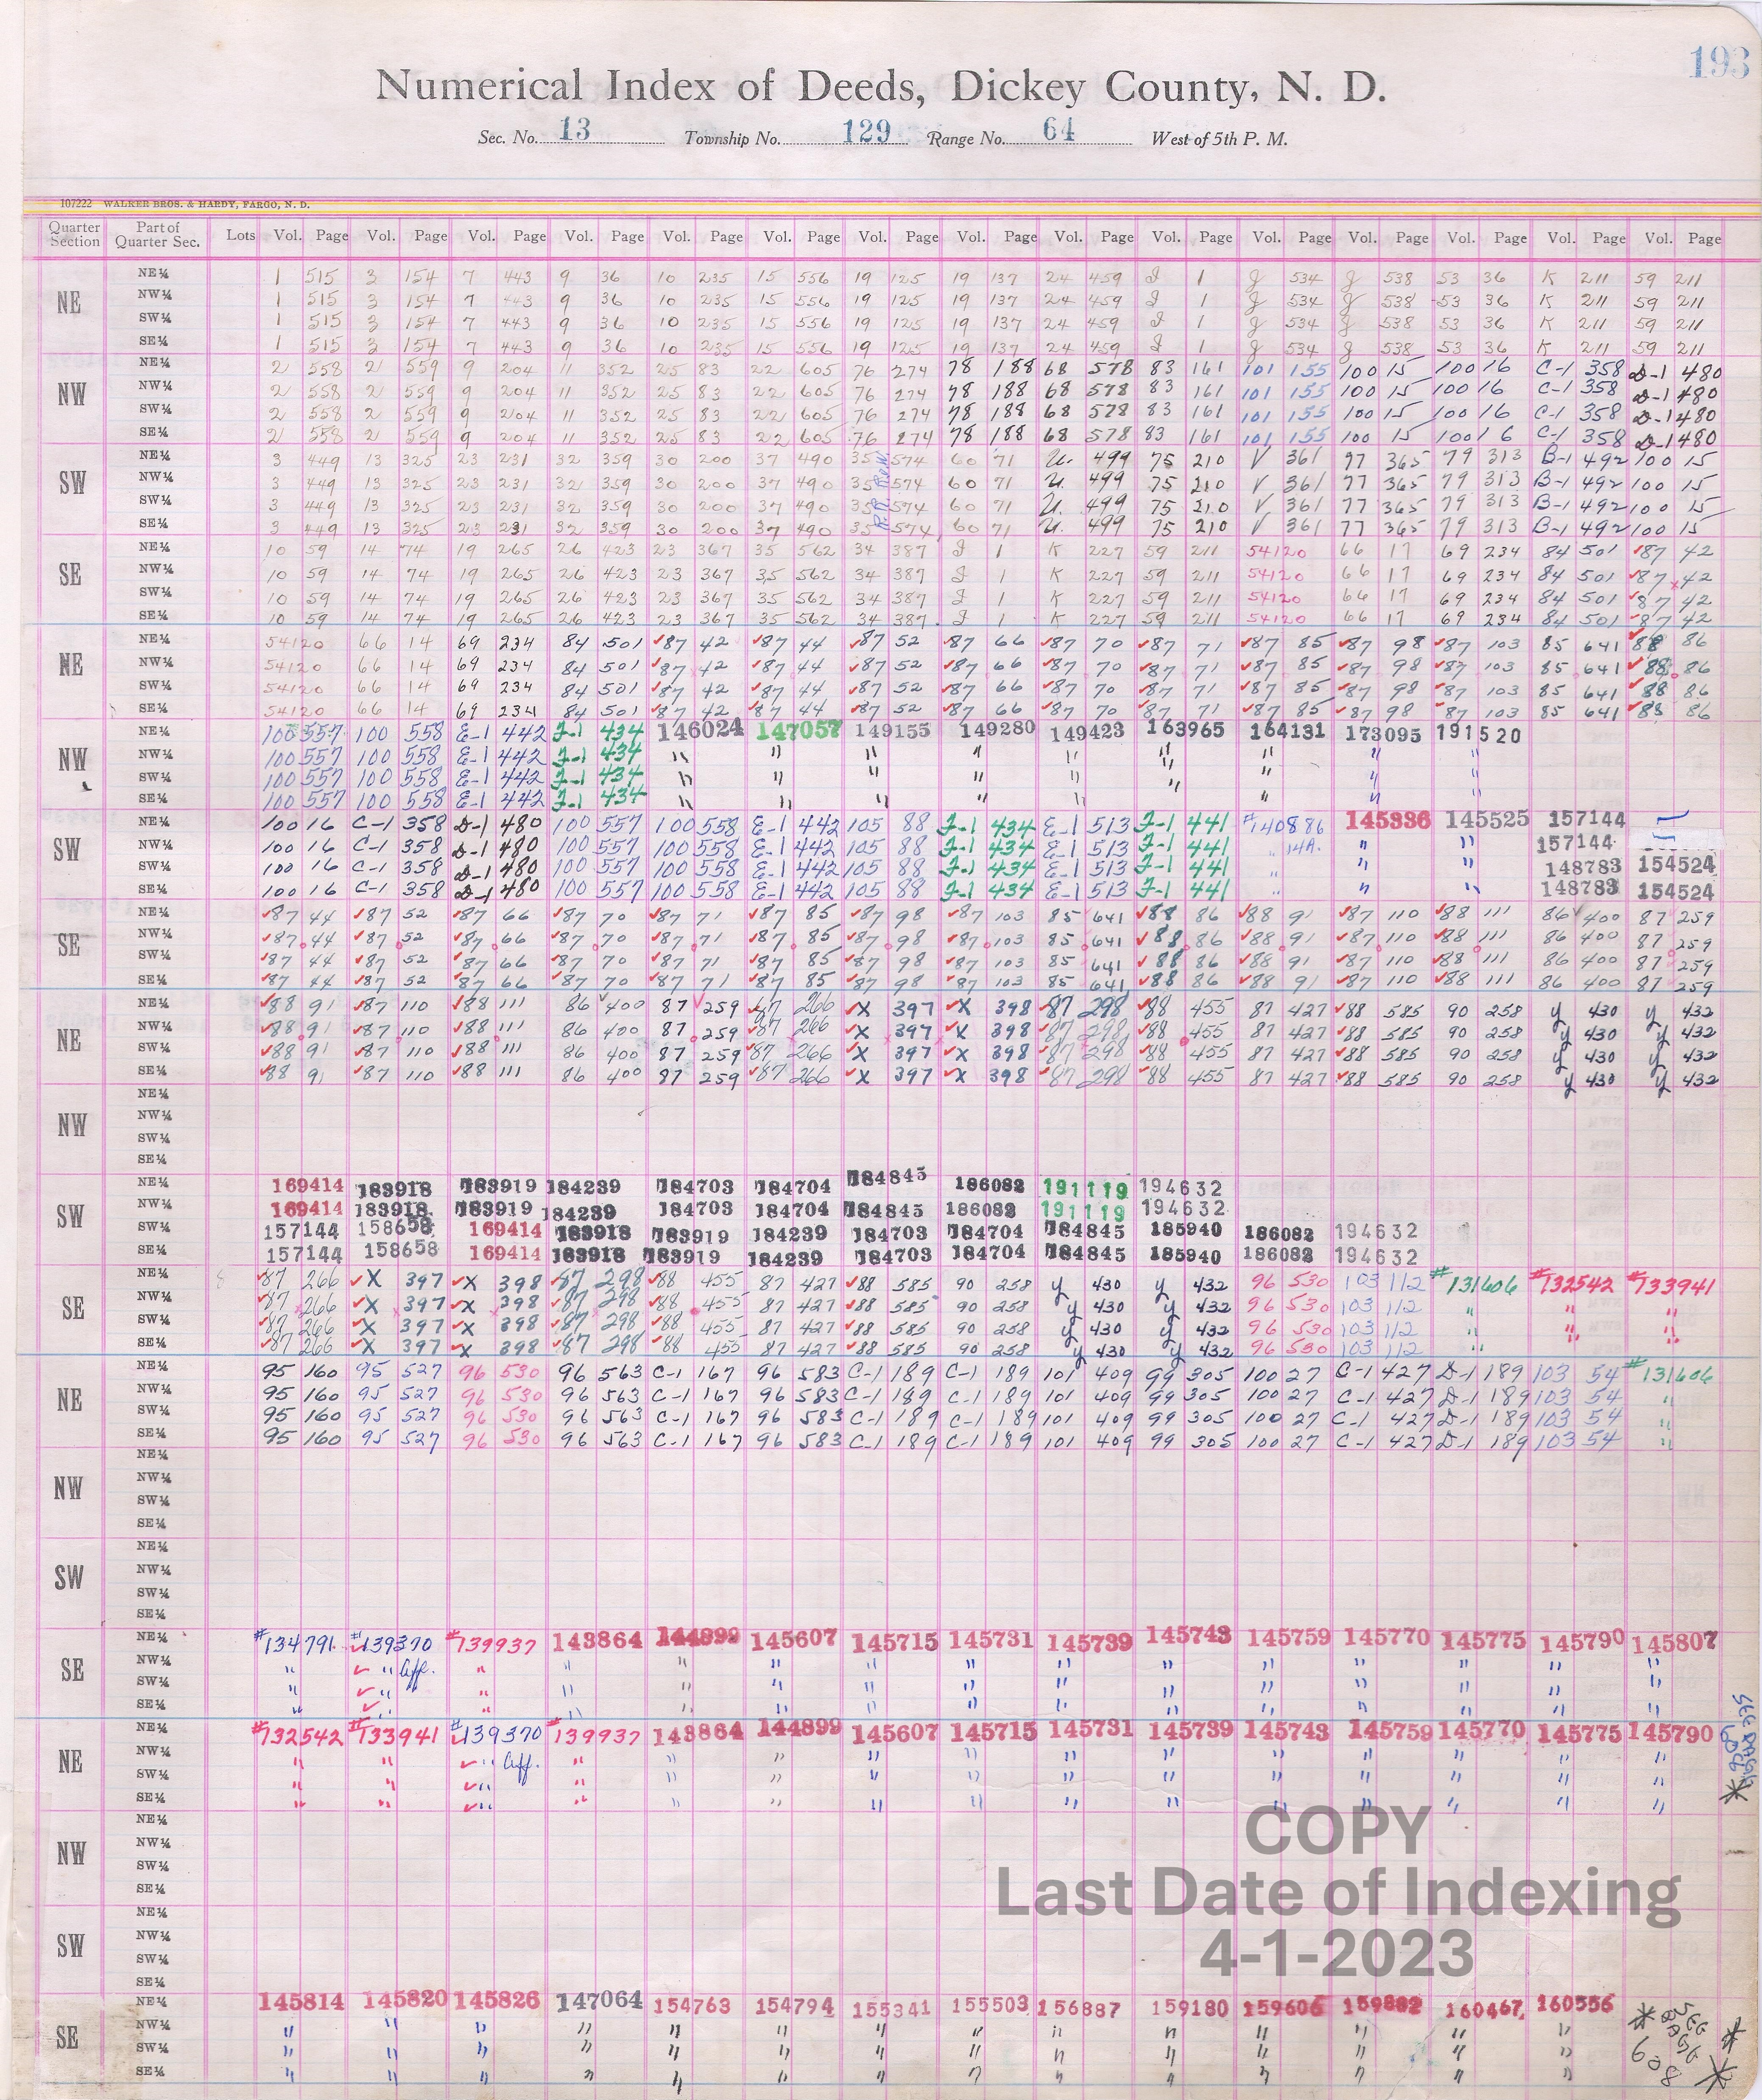 193
Numerical Index of Deeds, Dickey County, N. D.
Sec. No. 13 Township No. 129 Range No. 64 West of 5th P. M.
107222 WALKER BROS. & HARDY, FARGO, N. D.
Quarter Section Part of Quarter Sec. Lots Vol. Page Vol. Page Vol. Page Vol. Page Vol. Page Vol. Page Vol. Page Vol. Page Vol. Page Vol. Page Vol. Page Vol. Page Vol. Page Vol. Page Vol. Page
NE
NE¼ 1 515 3 154 7 443 9 36 10 235 15 556 19 125 19 137 24 459 J 1 g 534 g 538 53 36 K 211 59 211
NW¼ 1 515 3 154 7 443 9 36 10 235 15 556 19 125 19 137 24 459 J 1 g 534 g 538 53 36 K 211 59 211
SW¼ 1 515 3 154 7 443 9 36 10 235 15 556 19 125 19 137 24 459 J 1 g 534 g 538 53 36 K 211 59 211
SE¼ 1 515 3 154 7 443 9 36 10 235 15 556 19 125 19 137 24 459 J 1 g 534 g 538 53 36 K 211 59 211
NW
NE¼ 2 558 2 559 9 204 11 352 25 83 22 605 76 274 78 188 68 578 83 161 101 155 100 15 100 16 C-1 358 D-1 480
NW¼ 2 558 2 559 9 204 11 352 25 83 22 605 76 274 78 188 68 578 83 161 101 155 100 15 100 16 C-1 358 D-1 480
SW¼ 2 558 2 559 9 204 11 352 25 83 22 605 76 274 78 188 68 578 83 161 101 155 100 15 100 16 C-1 358 D-1 480
SE¼ 2 558 2 559 9 204 11 352 25 83 22 605 76 274 78 188 68 578 83 161 101 155 100 15 100 16 C-1 358 D-1 480
SW
NE¼ 3 449 13 325 23 231 32 359 30 200 37 490 35 574 60 71 U. 499 75 210 V 361 77 365 79 313 B-1 492 100 15
NW¼ 3 449 13 325 23 231 32 359 30 200 37 490 35 574 60 71 U. 499 75 210 V 361 77 365 79 313 B-1 492 100 15
SW¼ 3 449 13 325 23 231 32 359 30 200 37 490 35 574 60 71 U. 499 75 210 V 361 77 365 79 313 B-1 492 100 15
SE¼ 3 449 13 325 23 231 32 359 30 200 37 490 35 574 60 71 U. 499 75 210 V 361 77 365 79 313 B-1 492 100 15
SE
NE¼ 10 59 14 74 19 265 26 423 23 367 35 562 34 387 J 1 K 227 59 211 54120 66 17 69 234 84 501 ✓87 42
NW¼ 10 59 14 74 19 265 26 423 23 367 35 562 34 387 J 1 K 227 59 211 54120 66 17 69 234 84 501 ✓87 42
SW¼ 10 59 14 74 19 265 26 423 23 367 35 562 34 387 J 1 K 227 59 211 54120 66 17 69 234 84 501 ✓87 42
SE¼ 10 59 14 74 19 265 26 423 23 367 35 562 34 387 J 1 K 227 59 211 54120 66 17 69 234 84 501 ✓87 42
NE
NE¼ 54120 66 14 69 234 84 501 ✓87 42 ✓87 44 ✓87 52 ✓87 66 ✓87 70 ✓87 71 ✓87 85 ✓87 98 ✓87 103 85 641 ✓88 86
NW¼ 54120 66 14 69 234 84 501 ✓87 42 ✓87 44 ✓87 52 ✓87 66 ✓87 70 ✓87 71 ✓87 85 ✓87 98 ✓87 103 85 641 ✓88 86
SW¼ 54120 66 14 69 234 84 501 ✓87 42 ✓87 44 ✓87 52 ✓87 66 ✓87 70 ✓87 71 ✓87 85 ✓87 98 ✓87 103 85 641 ✓88 86
SE¼ 54120 66 14 69 234 84 501 ✓87 42 ✓87 44 ✓87 52 ✓87 66 ✓87 70 ✓87 71 ✓87 85 ✓87 98 ✓87 103 85 641 ✓88 86
NW
NE¼ 100 557 100 558 E-1 442 F-1 434 146024 147057 149155 149280 149423 163965 164131 173095 191520
NW¼ 100 557 100 558 E-1 442 F-1 434 " " " " " " " " "
SW¼ 100 557 100 558 E-1 442 F-1 434 " " " " " " " " "
SE¼ 100 557 100 558 E-1 442 F-1 434 " " " " " " " "
SW
NE¼ 100 16 C-1 358 D-1 480 100 557 100 558 E-1 442 105 88 F-1 434 E-1 513 F-1 441 #140886 145336 145525 157144
NW¼ 100 16 C-1 358 D-1 480 100 557 100 558 E-1 442 105 88 F-1 434 E-1 513 F-1 441 " 14A. " " 157144
SW¼ 100 16 C-1 358 D-1 480 100 557 100 558 E-1 442 105 88 F-1 434 E-1 513 F-1 441 " " " 148783 154524
SE¼ 100 16 C-1 358 D-1 480 100 557 100 558 E-1 442 105 88 F-1 434 E-1 513 F-1 441 " " " 148783 154524
SE
NE¼ ✓87 44 ✓87 52 ✓87 66 ✓87 70 ✓87 71 ✓87 85 ✓87 98 ✓87 103 85 641 ✓88 86 ✓88 91 ✓87 110 ✓88 111 86 400 87 259
NW¼ ✓87 44 ✓87 52 ✓87 66 ✓87 70 ✓87 71 ✓87 85 ✓87 98 ✓87 103 85 641 ✓88 86 ✓88 91 ✓87 110 ✓88 111 86 400 87 259
SW¼ ✓87 44 ✓87 52 ✓87 66 ✓87 70 ✓87 71 ✓87 85 ✓87 98 ✓87 103 85 641 ✓88 86 ✓88 91 ✓87 110 ✓88 111 86 400 87 259
SE¼ ✓87 44 ✓87 52 ✓87 66 ✓87 70 ✓87 71 ✓87 85 ✓87 98 ✓87 103 85 641 ✓88 86 ✓88 91 ✓87 110 ✓88 111 86 400 87 259
NE
NE¼ ✓88 91 ✓87 110 ✓88 111 86 400 87 259 ✓87 266 ✓X 397 ✓X 398 ✓87 298 ✓88 455 87 427 ✓88 585 90 258 y 430 y 432
NW¼ ✓88 91 ✓87 110 ✓88 111 86 400 87 259 ✓87 266 ✓X 397 ✓X 398 ✓87 298 ✓88 455 87 427 ✓88 585 90 258 y 430 y 432
SW¼ ✓88 91 ✓87 110 ✓88 111 86 400 87 259 ✓87 266 ✓X 397 ✓X 398 ✓87 298 ✓88 455 87 427 ✓88 585 90 258 y 430 y 432
SE¼ ✓88 91 ✓87 110 ✓88 111 86 400 87 259 ✓87 266 ✓X 397 ✓X 398 ✓87 298 ✓88 455 87 427 ✓88 585 90 258 y 430 y 432
NW
NE¼
NW¼
SW¼
SE¼
SW
NE¼ 169414 183918 183919 184239 184703 184704 184845 186082 191119 194632
NW¼ 169414 183918 183919 184239 184703 184704 184845 186082 191119 194632
SW¼ 157144 158658 169414 183918 183919 184239 184703 184704 184845 185940 186082 194632
SE¼ 157144 158658 169414 183918 183919 184239 184703 184704 184845 185940 186082 194632
SE
NE¼ ✓87 266 ✓X 397 ✓X 398 ✓87 298 ✓88 455 87 427 ✓88 585 90 258 y 430 y 432 96 530 103 112 #131606 #132542 #133941
NW¼ ✓87 266 ✓X 397 ✓X 398 ✓87 298 ✓88 455 87 427 ✓88 585 90 258 y 430 y 432 96 530 103 112 " " "
SW¼ ✓87 266 ✓X 397 ✓X 398 ✓87 298 ✓88 455 87 427 ✓88 585 90 258 y 430 y 432 96 530 103 112 " " "
SE¼ ✓87 266 ✓X 397 ✓X 398 ✓87 298 ✓88 455 87 427 ✓88 585 90 258 y 430 y 432 96 530 103 112 " " "
NE
NE¼ 95 160 95 527 96 530 96 563 C-1 167 96 583 C-1 189 C-1 189 101 409 99 305 100 27 C-1 427 D-1 189 103 54 #131606
NW¼ 95 160 95 527 96 530 96 563 C-1 167 96 583 C-1 189 C-1 189 101 409 99 305 100 27 C-1 427 D-1 189 103 54 "
SW¼ 95 160 95 527 96 530 96 563 C-1 167 96 583 C-1 189 C-1 189 101 409 99 305 100 27 C-1 427 D-1 189 103 54 "
SE¼ 95 160 95 527 96 530 96 563 C-1 167 96 583 C-1 189 C-1 189 101 409 99 305 100 27 C-1 427 D-1 189 103 54 "
NW
NE¼
NW¼
SW¼
SE¼
SW
NE¼
NW¼
SW¼
SE¼
SE
NE¼ #134791 #139370 #139937 143864 144899 145607 145715 145731 145739 145743 145759 145770 145775 145790 145807
NW¼ " ✓ " Aff. " " " " " " " " " " " " "
SW¼ " ✓ " " " " " " " " " " " " " "
SE¼ " ✓ " " " " " " " " " " " " " "
NE
NE¼ #132542 #133941 #139370 #139937 143864 144899 145607 145715 145731 145739 145743 145759 145770 145775 145790
NW¼ " " ✓ " Aff. " " " " " " " " " " " "
SW¼ " " ✓ " " " " " " " " " " " " "
SE¼ " " ✓ " " " " " " " " " " " " "
SEE PAGE
608 *
NW
NE¼
NW¼
SW¼
SE¼
SW
NE¼
NW¼
SW¼
SE¼
COPY
Last Date of Indexing
4-1-2023
SE
NE¼ 145814 145820 145826 147064 154763 154794 155341 155503 156887 159180 159606 159882 160467 160556
NW¼ " " " " " " " " " " " " " "
SW¼ " " " " " " " " " " " " " "
SE¼ " " " " " " " " " " " " " "
* SEE PAGE 608 * *